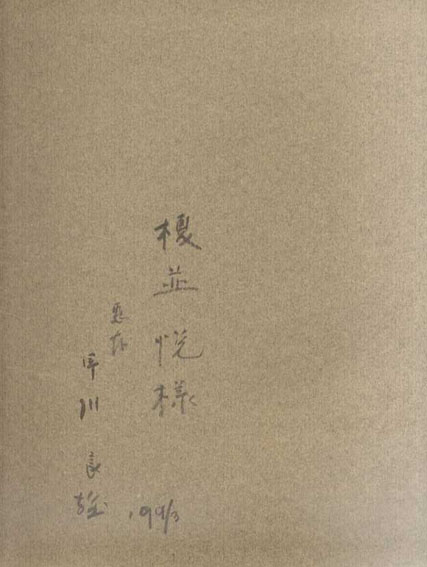 榎並 悦様
恵存
早川 良雄
1991/3